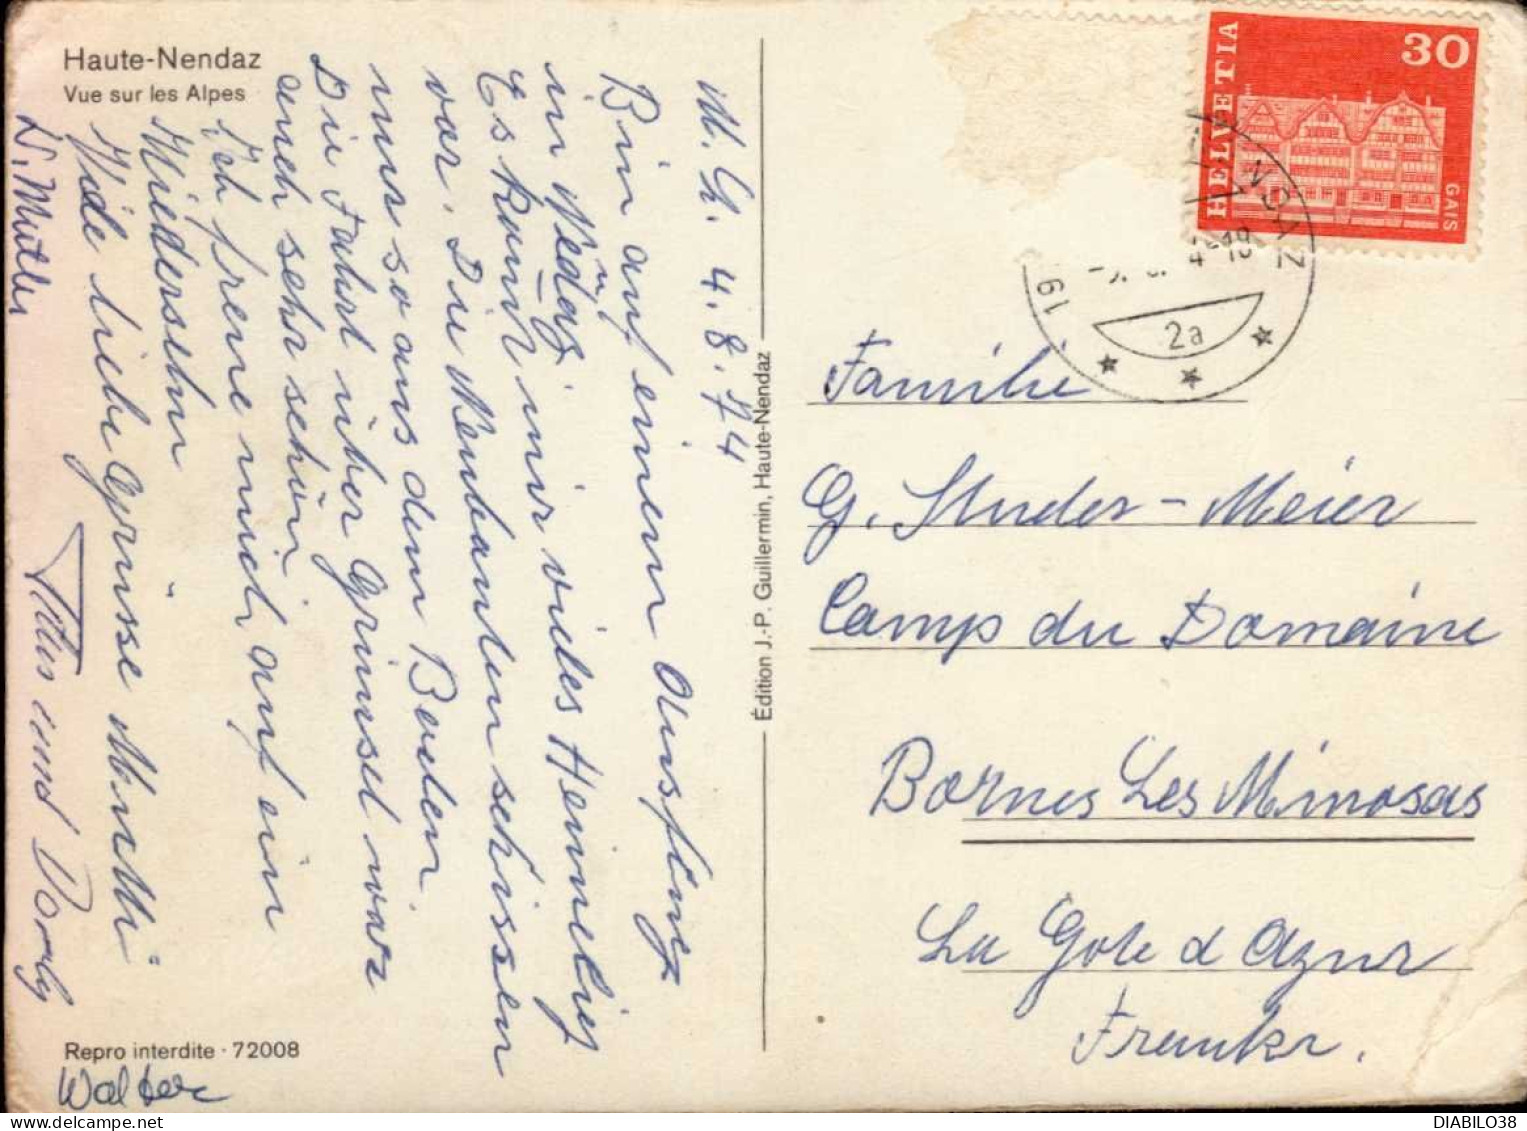 Haute-Nendaz
Vue sur les Alpes
M. G. 4.8.74
Bin auf einem Ausflug
in Nendaz
Es kommt mir vieles Heimelig
vor. Die Neubauten schiessen
nur so aus dem Boden.
Die Fahrt über Grimsel war
auch sehr schön
Ich freue mich auf ein
Wiedersehn
liebe Grüsse Mutti
D. Mutter
und Dorly
Walter
Repro interdite · 72008
Édition J.-P. Guillermin, Haute-Nendaz
HELVETIA
30
GAIS
2a
Familie
G. Studer-Meier
Camp du Domaine
Bormes Les Mimosas
La Cote d Azur
Frankr.
DIABILO38